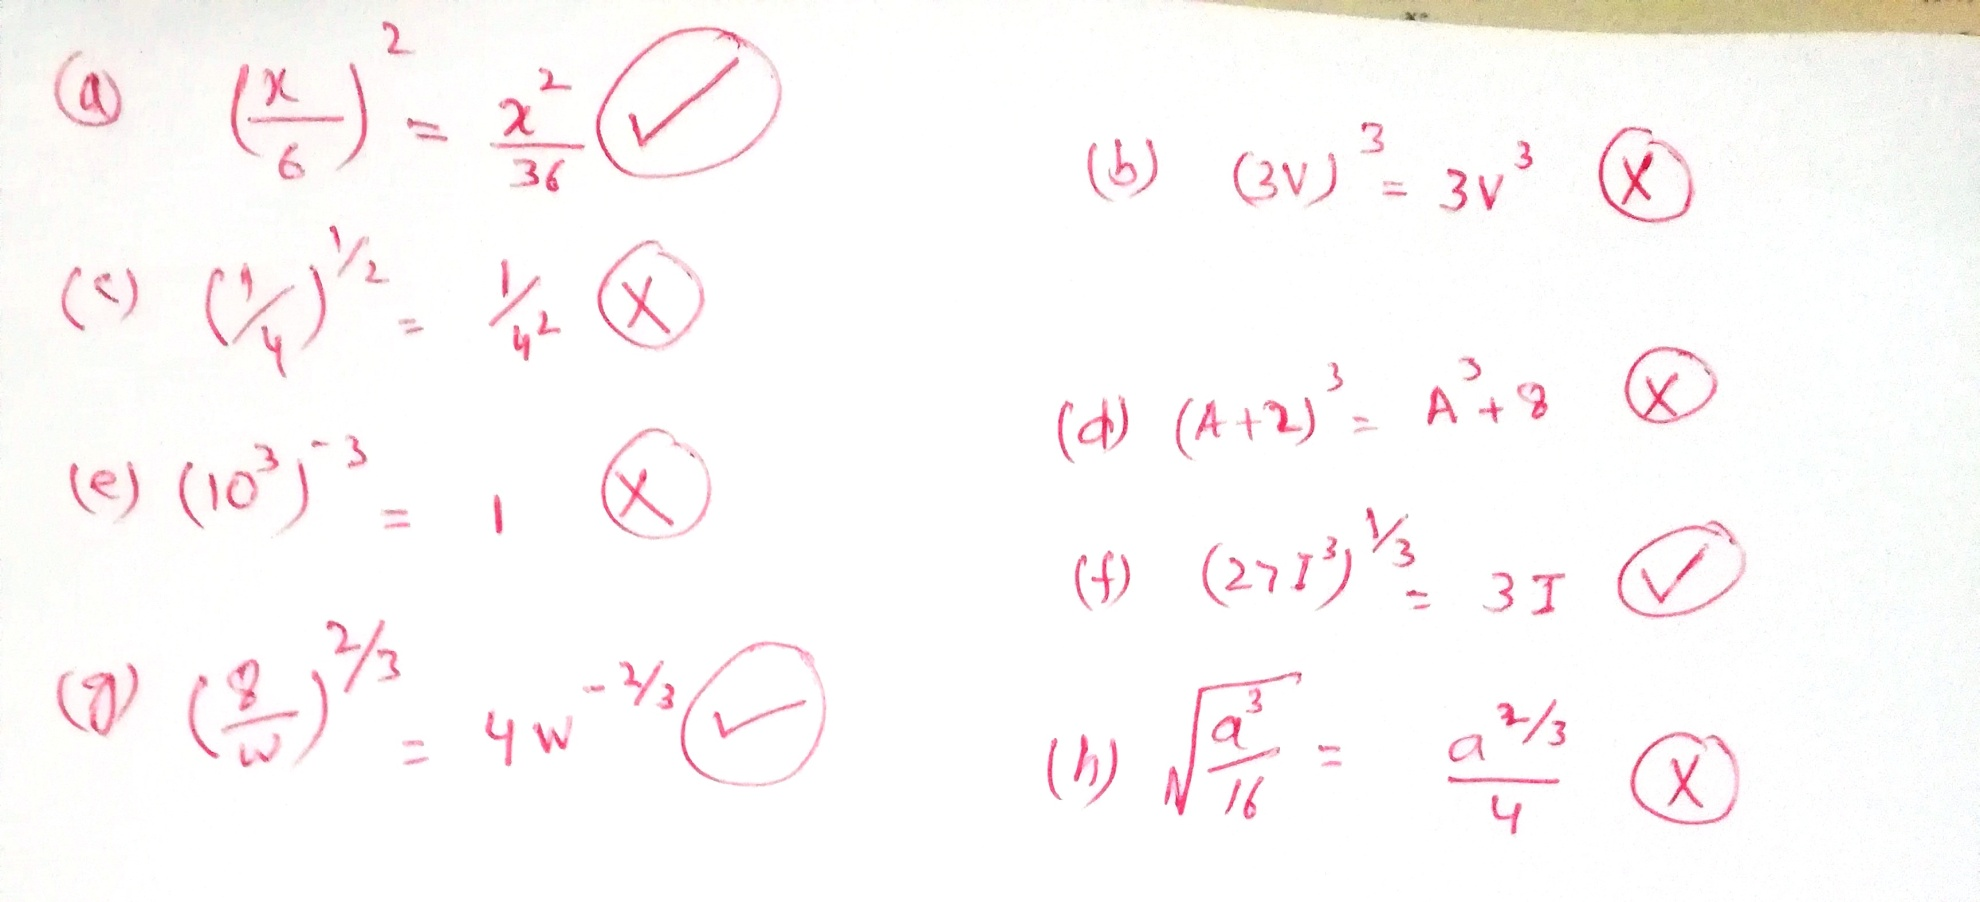 (a) (x/6)² = x²/36 ✓
(b) (3V)³ = 3V³ X
(c) (1/4)^1/2 = 1/4² X
(d) (A+2)³ = A³+8 X
(e) (10³)⁻³ = 1 X
(f) (27I³)^1/3 = 3I ✓
(g) (8/w)^2/3 = 4w^-2/3 ✓
(h) √(a³/16) = a^2/3/4 X